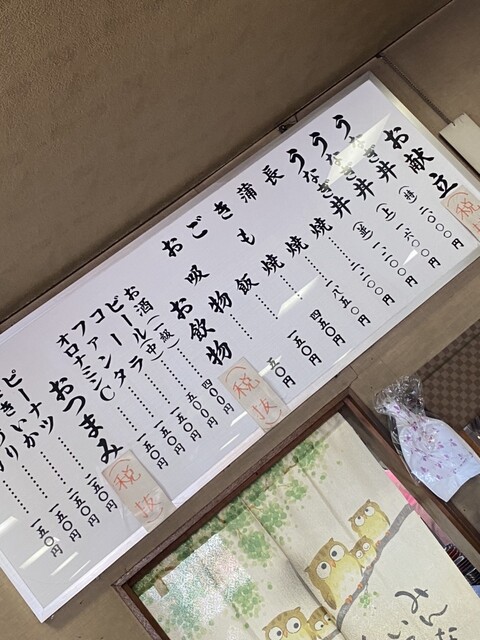 お献立
(税抜)
うなぎ丼(特)二〇〇〇円
うなぎ丼(上)一六〇〇円
うなぎ丼(並)一二〇〇円
長焼……二二〇〇円
蒲焼……一八五〇円
きも焼……四五〇円
ご飯……一五〇円
お吸物……一五〇円
お飲物
(税抜)
お酒(一級)……四〇〇円
ビール(中)……五〇〇円
コーラ……一五〇円
ファンタ……一五〇円
オロナミンC……一五〇円
おつまみ
(税抜)
ピーナツ……一五〇円
みんな